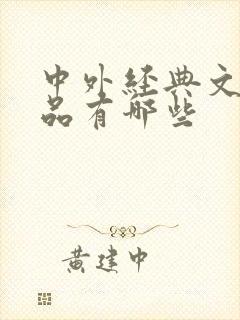 中外经典文
品有哪些
黄建中